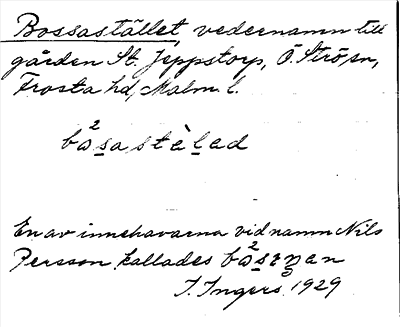 Bossastället, vedernamn till
gården St. Jeppstorp, Ö. Strö sn,
Frosta hd, Malm. l.
bå²sastèlad
En av innehavarna vid namn Nils
Persson kallades
I. Ingers 1929